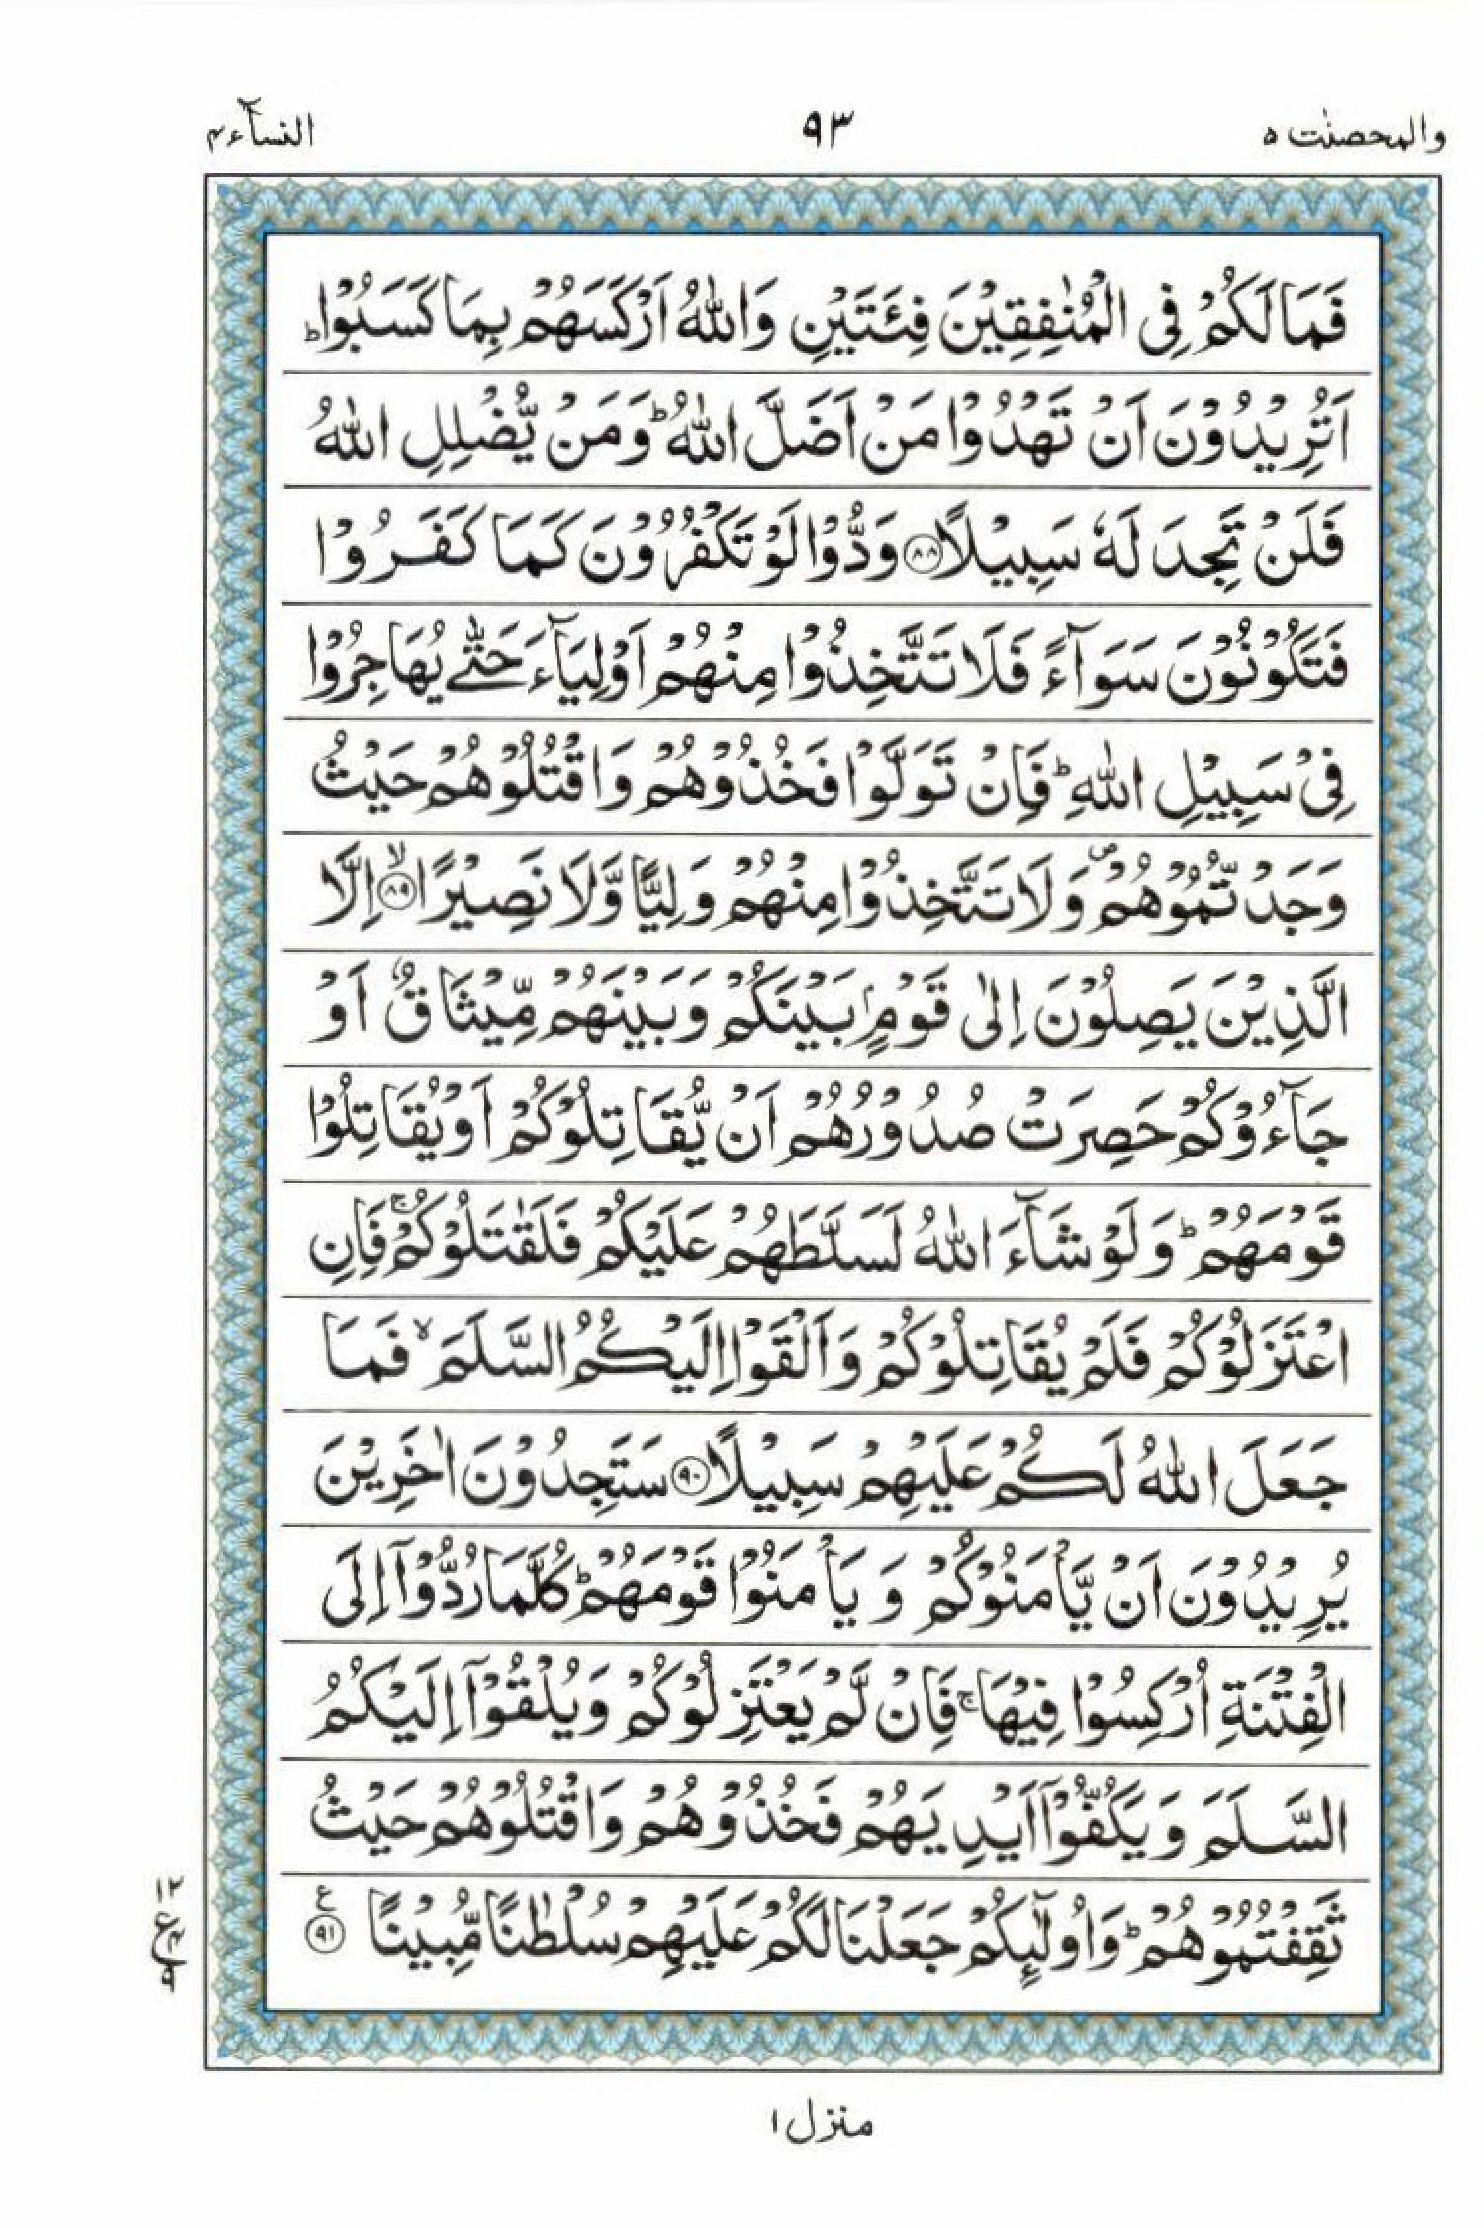 والمحصنٰت ٥
٩٣
النسآء ٤
فَمَا لَكُمْ فِى الْمُنٰفِقِيْنَ فِئَتَيْنِ وَاللّٰهُ اَرْكَسَهُمْ بِمَا كَسَبُوْا ؕ
اَتُرِيْدُوْنَ اَنْ تَهْدُوْا مَنْ اَضَلَّ اللّٰهُ ؕ وَمَنْ يُّضْلِلِ اللّٰهُ
فَلَنْ تَجِدَ لَهٗ سَبِيْلًا ﴿٨٨﴾ وَدُّوْا لَوْ تَكْفُرُوْنَ كَمَا كَفَرُوْا
فَتَكُوْنُوْنَ سَوَآءً فَلَا تَتَّخِذُوْا مِنْهُمْ اَوْلِيَآءَ حَتّٰى يُهَاجِرُوْا
فِىْ سَبِيْلِ اللّٰهِ ؕ فَاِنْ تَوَلَّوْا فَخُذُوْهُمْ وَاقْتُلُوْهُمْ حَيْثُ
وَجَدْتُّمُوْهُمْ ۪ وَلَا تَتَّخِذُوْا مِنْهُمْ وَلِيًّا وَّلَا نَصِيْرًا ۙ﴿٨٩﴾ اِلَّا
الَّذِيْنَ يَصِلُوْنَ اِلٰى قَوْمٍۢ بَيْنَكُمْ وَبَيْنَهُمْ مِّيْثَاقٌ اَوْ
جَآءُوْكُمْ حَصِرَتْ صُدُوْرُهُمْ اَنْ يُّقَاتِلُوْكُمْ اَوْ يُقَاتِلُوْا
قَوْمَهُمْ ؕ وَلَوْ شَآءَ اللّٰهُ لَسَلَّطَهُمْ عَلَيْكُمْ فَلَقٰتَلُوْكُمْ ۚ فَاِنِ
اعْتَزَلُوْكُمْ فَلَمْ يُقَاتِلُوْكُمْ وَاَلْقَوْا اِلَيْكُمُ السَّلَمَ ۙ فَمَا
جَعَلَ اللّٰهُ لَكُمْ عَلَيْهِمْ سَبِيْلًا ﴿٩٠﴾ سَتَجِدُوْنَ اٰخَرِيْنَ
يُرِيْدُوْنَ اَنْ يَّاْمَنُوْكُمْ وَيَاْمَنُوْا قَوْمَهُمْ ؕ كُلَّمَا رُدُّوْۤا اِلَى
الْفِتْنَةِ اُرْكِسُوْا فِيْهَا ۚ فَاِنْ لَّمْ يَعْتَزِلُوْكُمْ وَيُلْقُوْۤا اِلَيْكُمُ
السَّلَمَ وَيَكُفُّوْۤا اَيْدِيَهُمْ فَخُذُوْهُمْ وَاقْتُلُوْهُمْ حَيْثُ
ثَقِفْتُمُوْهُمْ ؕ وَاُولٰٓئِكُمْ جَعَلْنَا لَكُمْ عَلَيْهِمْ سُلْطٰنًا مُّبِيْنًا ﴿٩١﴾ ع
١٢
ع ٤
٩
منزل ١